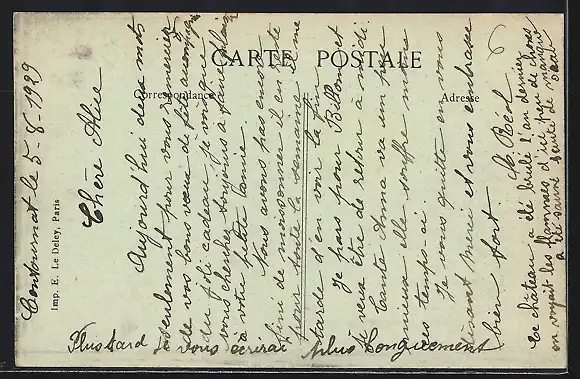 CARTE POSTALE
Correspondance
Adresse
Imp. E. Le Deley, Paris
Contournat le 5-8-1929
Chère Alice
Aujourd'hui deux mots
seulement pour vous remercier
de vos bons vœux de fête accompagnés
du joli cadeau, je vois que
vous cherchez toujours à faire plaisir
à votre petite amie.
Nous avons pas encore
fini de moissonner il en reste
pour toute la semaine il me
tarde d'en voir la fin.
Je pars pour Billom et
je veux être de retour à midi
Tante Anna va un peu
mieux elle souffre moins
ces temps-ci.
Je vous quitte en vous
disant merci et vous embrasse
bien fort
Plus tard je vous écrirai plus longuement
Ce château a été brulé l'an dernier
on voyait les flammes d'ici peu de choses
a été sauvé